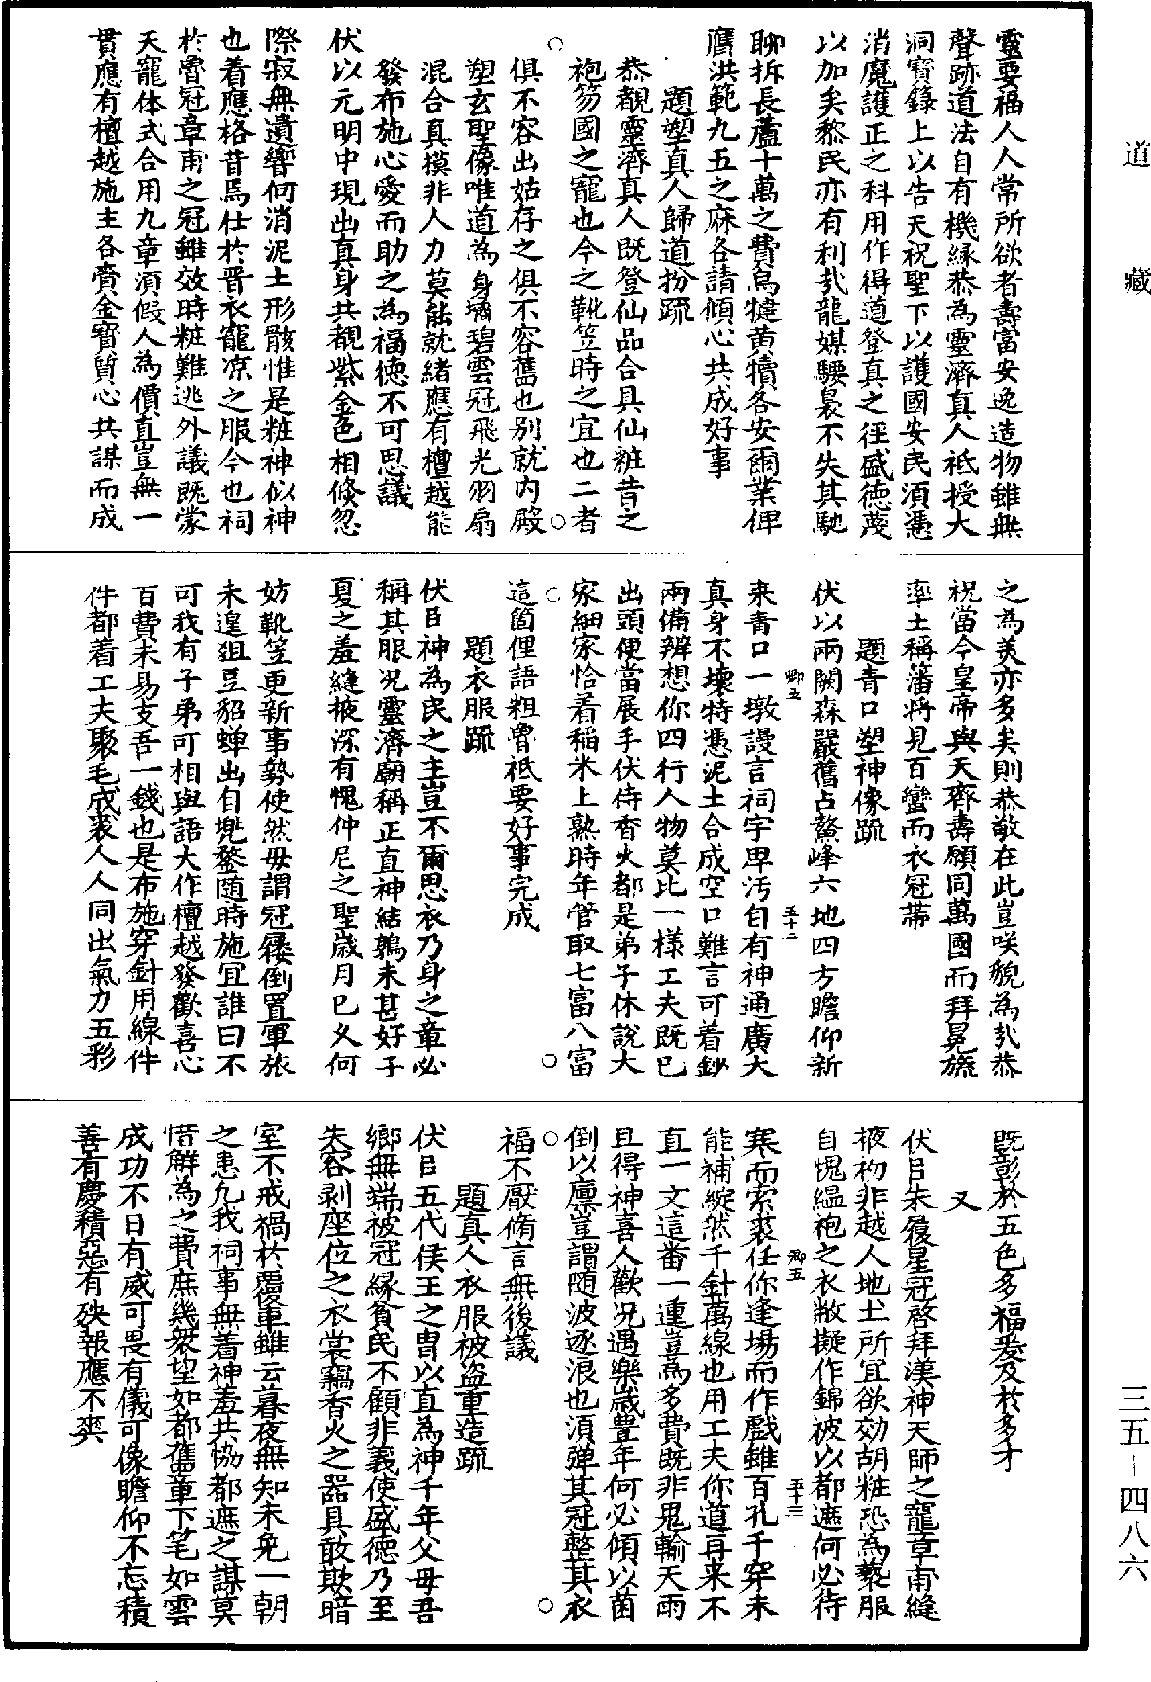 道藏
靈要福人人常所欲者壽富安逸造物雖無
聲跡道法自有機緣恭為靈濟真人祗授大
洞寶籙上以告天祝聖下以護國安民須憑
消魔護正之科用作得道登真之徑盛德蔑
以加矣黎民亦有利哉龍媒騕裊不失其馳
聊拆長蘆十萬之費烏犍黄犢各安爾業俾
膺洪範九五之庥各請傾心共成好事
題塑真人歸道扮疏
恭覩靈濟真人既登仙品合具仙粧昔之
袍笏國之寵也今之靴笠時之宜也二者
俱不容出姑存之俱不容舊也别就内殿
塑玄聖像唯道為身璚碧雲冠飛光羽扇
混合真摸非人力莫能就緒應有檀越能
發布施心愛而助之為福德不可思議
伏以元明中現出真身共覩紫金色相倏忽
際寂無遺響何消泥土形骸惟是粧神似神
也着應格昔焉仕於晋衣寵凉之服今也祠
於魯冠章甫之冠雖效時粧難逃外議既蒙
天寵体式合用九章須假人為價直豈無一
貫應有檀越施主各賫金寶質心共謀而成
之為美亦多矣則恭敬在此豈咲貌為哉恭
祝當今皇帝與天齊壽願同萬國而拜冕旒
率土稱藩将見百蠻而衣冠帶
題青口塑神像疏
伏以兩闕森嚴舊占鰲峰六地四方瞻仰新
卿五
五十二
来青口一墩謾言祠宇卑汚自有神通廣大
真身不壊特憑泥土合成空口難言可着鈔
兩備辨想你四行人物莫比一様工夫既已
出頭便當展手伏侍香火都是弟子休説大
家細家恰着稻米上熟時年管取七富八富
這箇俚語粗魯祗要好事完成
題衣服疏
伏㠯神為民之主豈不爾思衣乃身之章必
稱其服况靈濟廟稱正直神結鶉未甚好子
夏之羞縫掖深有愧仲尼之聖歳月已乆何
妨靴笠更新事勢使然毋謂冠屨倒置軍旅
未遑俎豆貂蟬出自兠鍪随時施宜誰曰不
可我有子弟可相與語大作檀越發歡喜心
百費未易支吾一錢也是布施穿針用線件
件都着工夫聚毛成裘人人同出氣力五彩
既彰於五色多福爰及於多才
又
伏㠯朱履星冠啓拜漢神天師之寵章甫縫
掖礿非越人地土所宜欲効胡粧恐為褻服
自愧緼袍之衣敝擬作錦被以都遮何必待
卿五
五十三
寒而索裘任你逢場而作戲雖百孔千穿未
能補綻然千針萬線也用工夫你道再来不
直一文這畨一連豈為多費既非鬼輸天雨
且得神喜人歡况遇樂歳豊年何必傾以菌
倒以廪豈謂随波逐浪也須弹其冠整其衣
福不厭脩言無後議
題真人衣服被盗重造疏
伏㠯五代侯王之胄以直為神千年父母吾
鄉無端被冠緣貧民不顧非義使盛德乃至
失容剥座位之衣裳竊香火之器具敢欺暗
室不戒禍於覆車雖云暮夜無知未免一朝
之患凢我祠事無着神羞共協都遮之謀莫
惜解為之費庶幾衆望如都舊章下笔如雲
成功不日有威可畏有儀可像瞻仰不忘積
善有慶積惡有殃報應不爽
三五—四八六